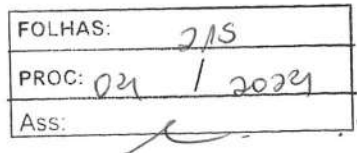 FOLHAS: 215
PROC: 04 / 2024
Ass: